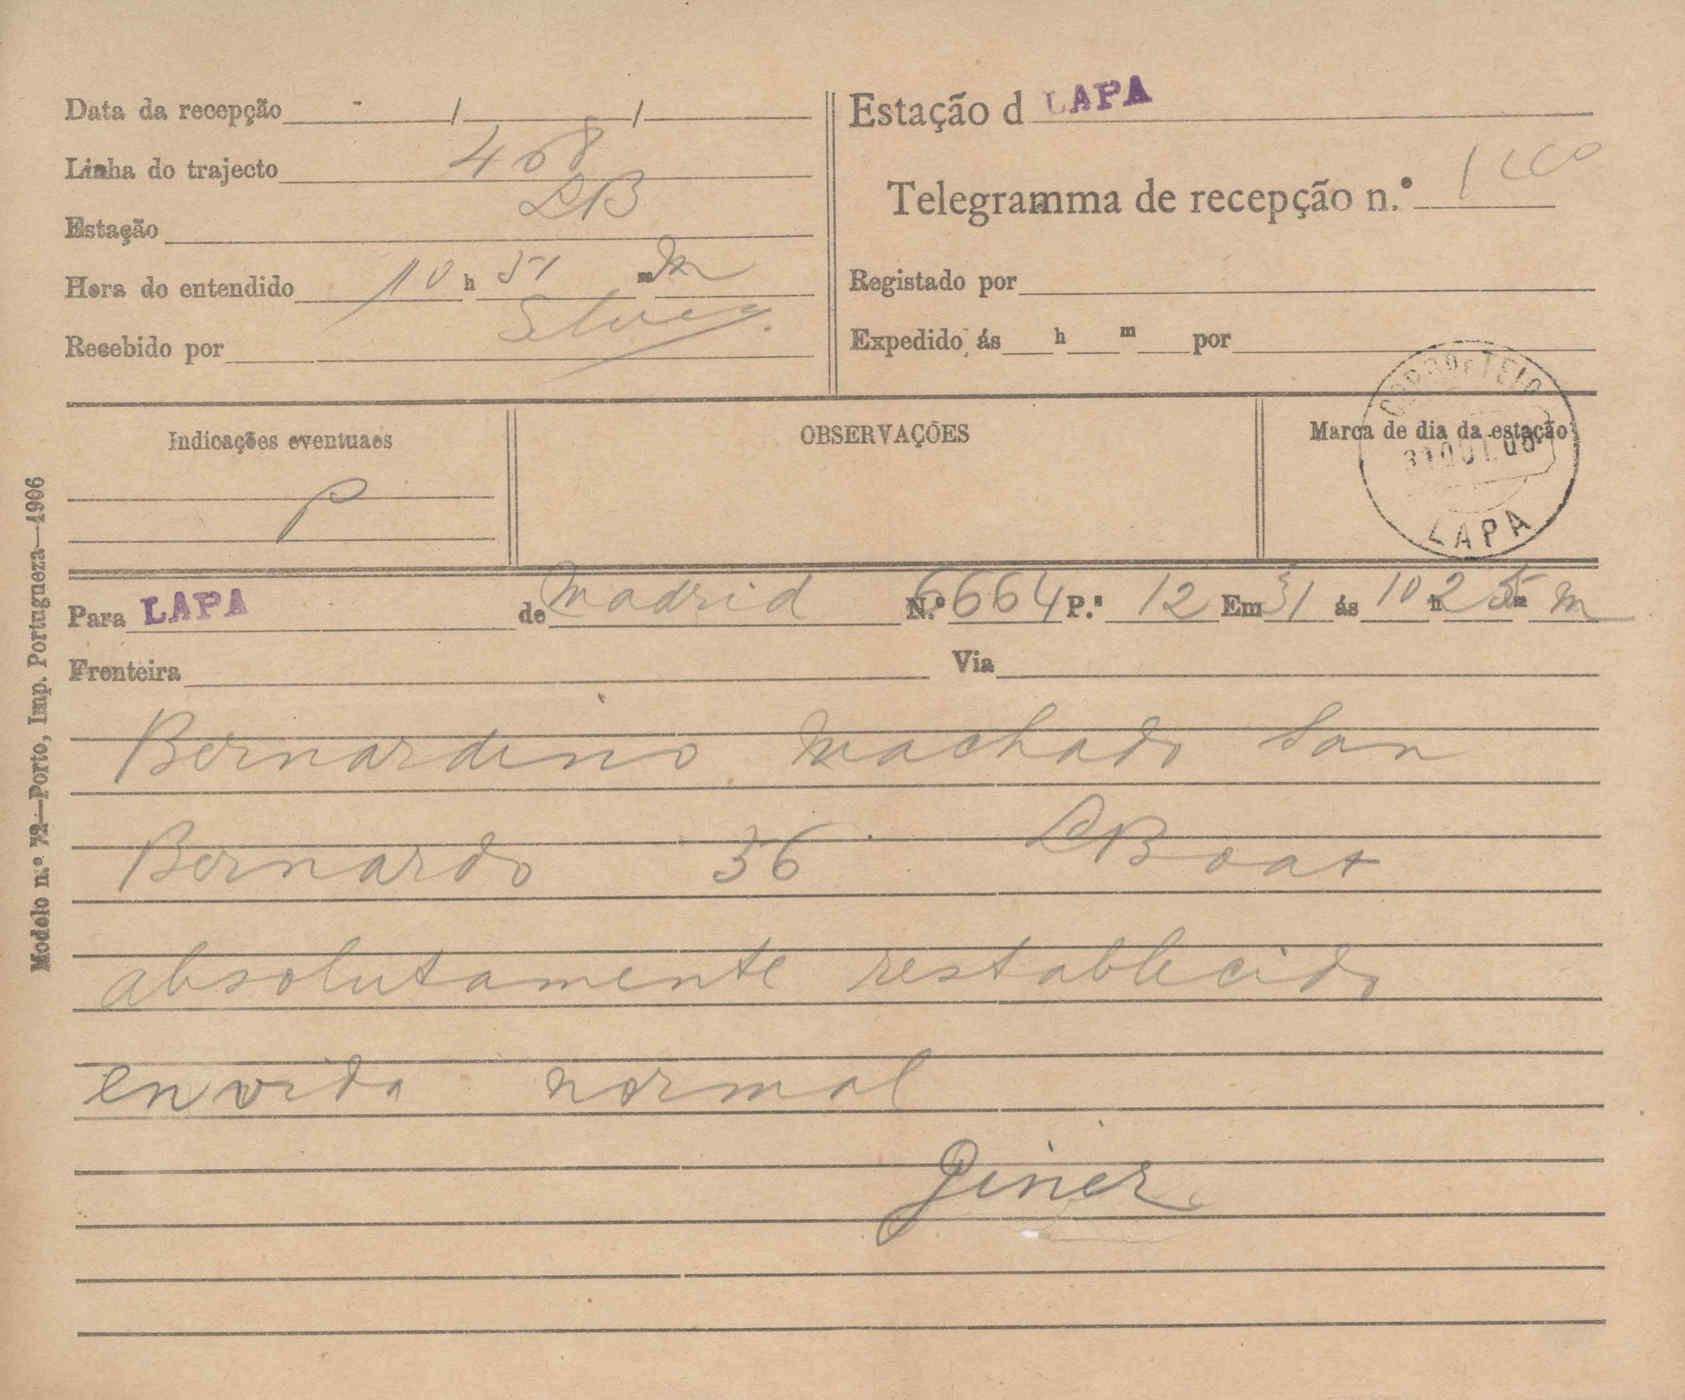 Data da recepção / /
Linha do trajecto 408
Estação LB
Hora do entendido 10 h 51 m M
Recebido por
Estação d LAPA
Telegramma de recepção n.º
Registado por
Expedido ás h m por
Indicações eventuaes
P
OBSERVAÇÕES
Marca de dia da estação
31 OUT 06
LAPA
Modelo n.º 72—Porto, Imp. Portugueza—1906
Para LAPA de Madrid N.º 6664 P.ª 12 Em 31 ás 10 h 25 m M
Fronteira Via
Bernardino Machado San
Bernardo 36 LBoa
absolutamente restablecido
en vida normal
Giner